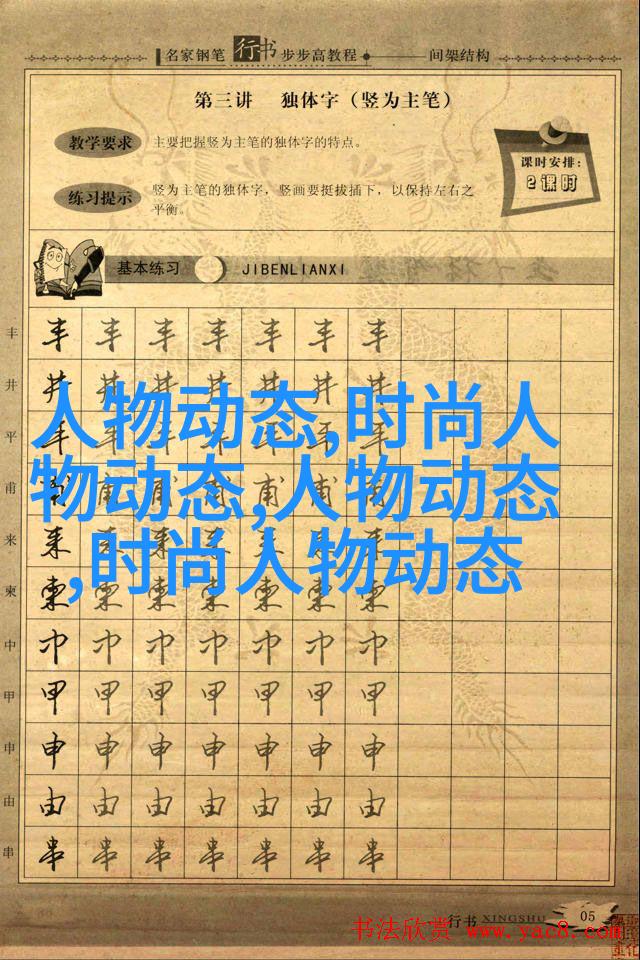 名家钢笔行书步步高教程 间架结构
第三讲 独体字（竖为主笔）
教学要求 主要把握竖为主笔的独体字的特点。
练习提示 竖为主笔的独体字，竖画要挺拔插下，以保持左右之
平衡。
课时安排：
2课时
基本练习 JIBENLIANXI
丰 丰丰丰丰丰丰丰
井 井井井井井井井
平 平平平平平平平
甫 甫甫甫甫甫甫甫
来 来来来来来来来
柬 柬柬柬柬柬柬柬
中 中中中中中中中
甲 甲甲甲甲甲甲甲
申 申申申申申申申
由 由由由由由由由
串 串串串串串串串
人物动态,时尚人
物动态,人物动态
,时尚人物动态
行书 XINGSHU 05
书法欣赏 www.yac8.com